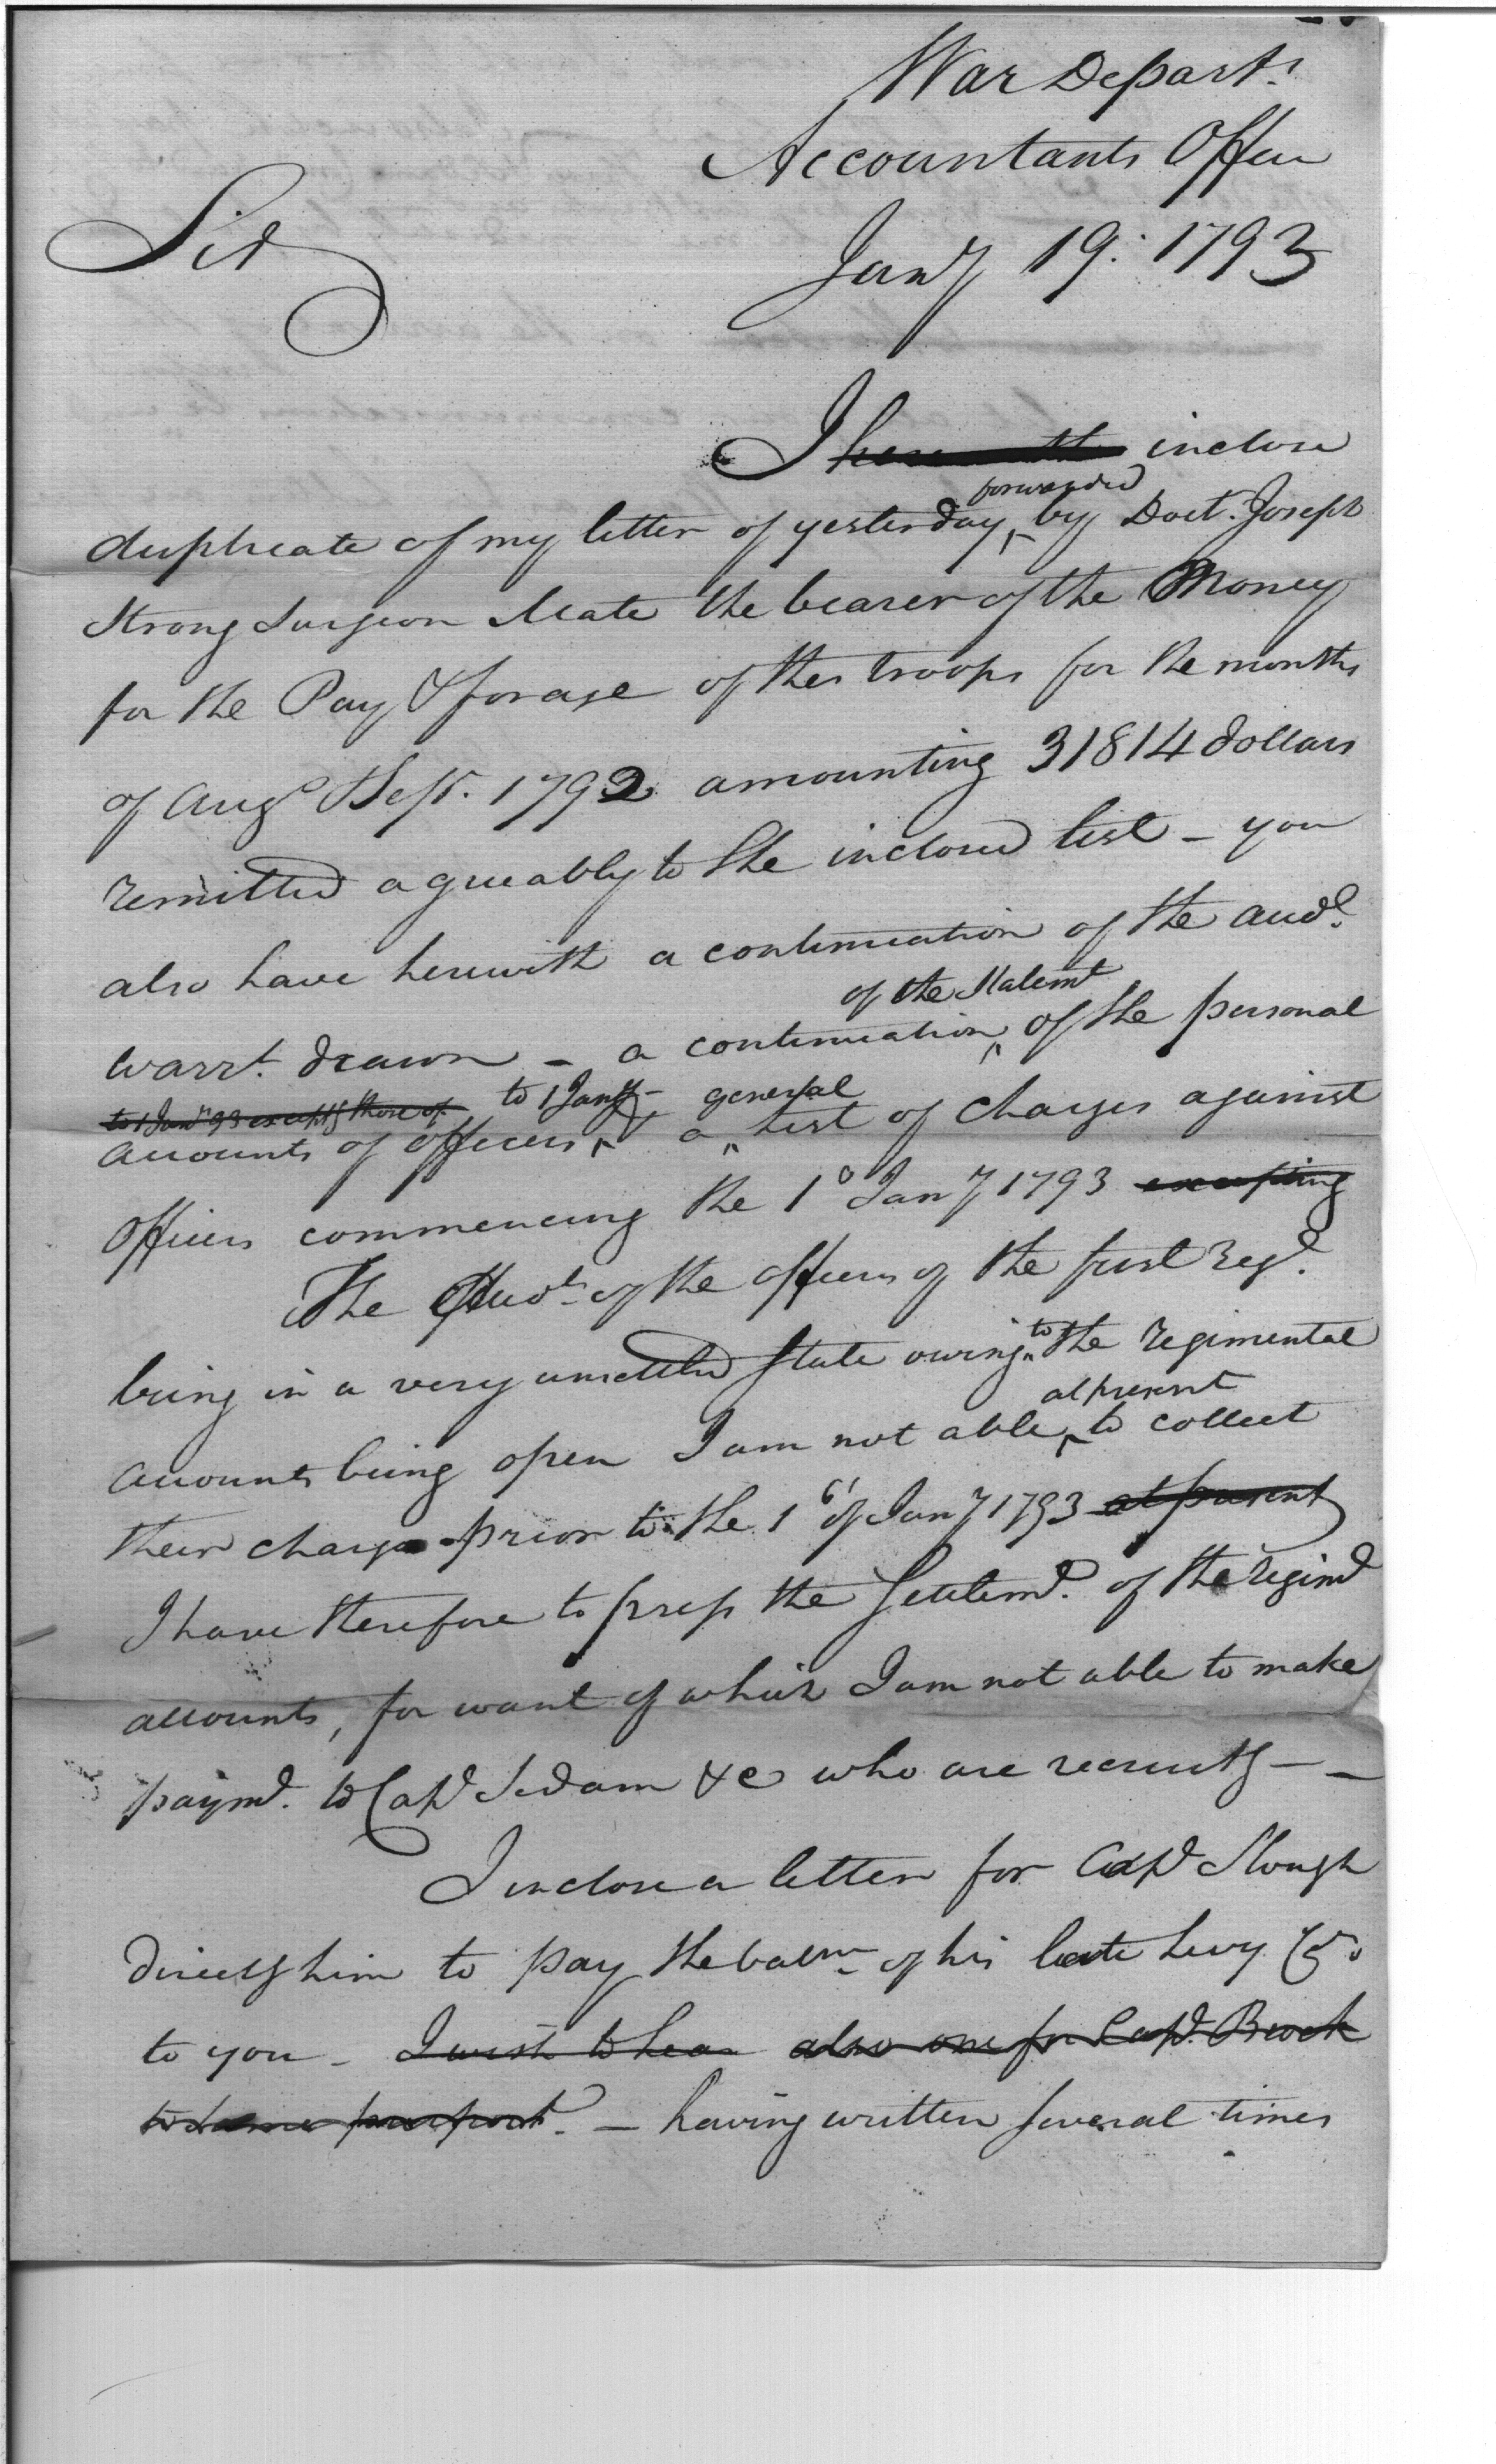 War Depart.
Accountants Office
Sir
Jany 19: 1793
I herewith inclose
forwarded
duplicate of my letter of yesterday by Doct. Joseph
Strong Surgeon Mate the bearer of the Money
for the Pay & forage of the troops for the months
of Augt & Sept. 1792 amounting 31814 dollars
remitted agreeably to the inclosed list - you
also have herewith a continuation of the
warrt. drawn - a continuation of the personal
of the Statemt
to 1 Jany 93 exceptg those of to 1 Jany - general
accounts of officers & a list of charges against
officers commencing the 1st Jany 1793 excepting
The Accots of the officers of the first Regt.
being in a very unsettled state owing to the regimental
at present
accounts being open I am not able to collect
their charges prior to the 1st of Jany 1793 at present
I have therefore to press the Settlemt. of the regimt
accounts, for want of which I am not able to make
paymt. to Capt Sedam &c who are recruitg - -
I inclose a letter for Capt Slough
directg him to pay the balce of his late Levy
to you - I wish to hear also one for Capt. Brock
to same purport. - having written several times